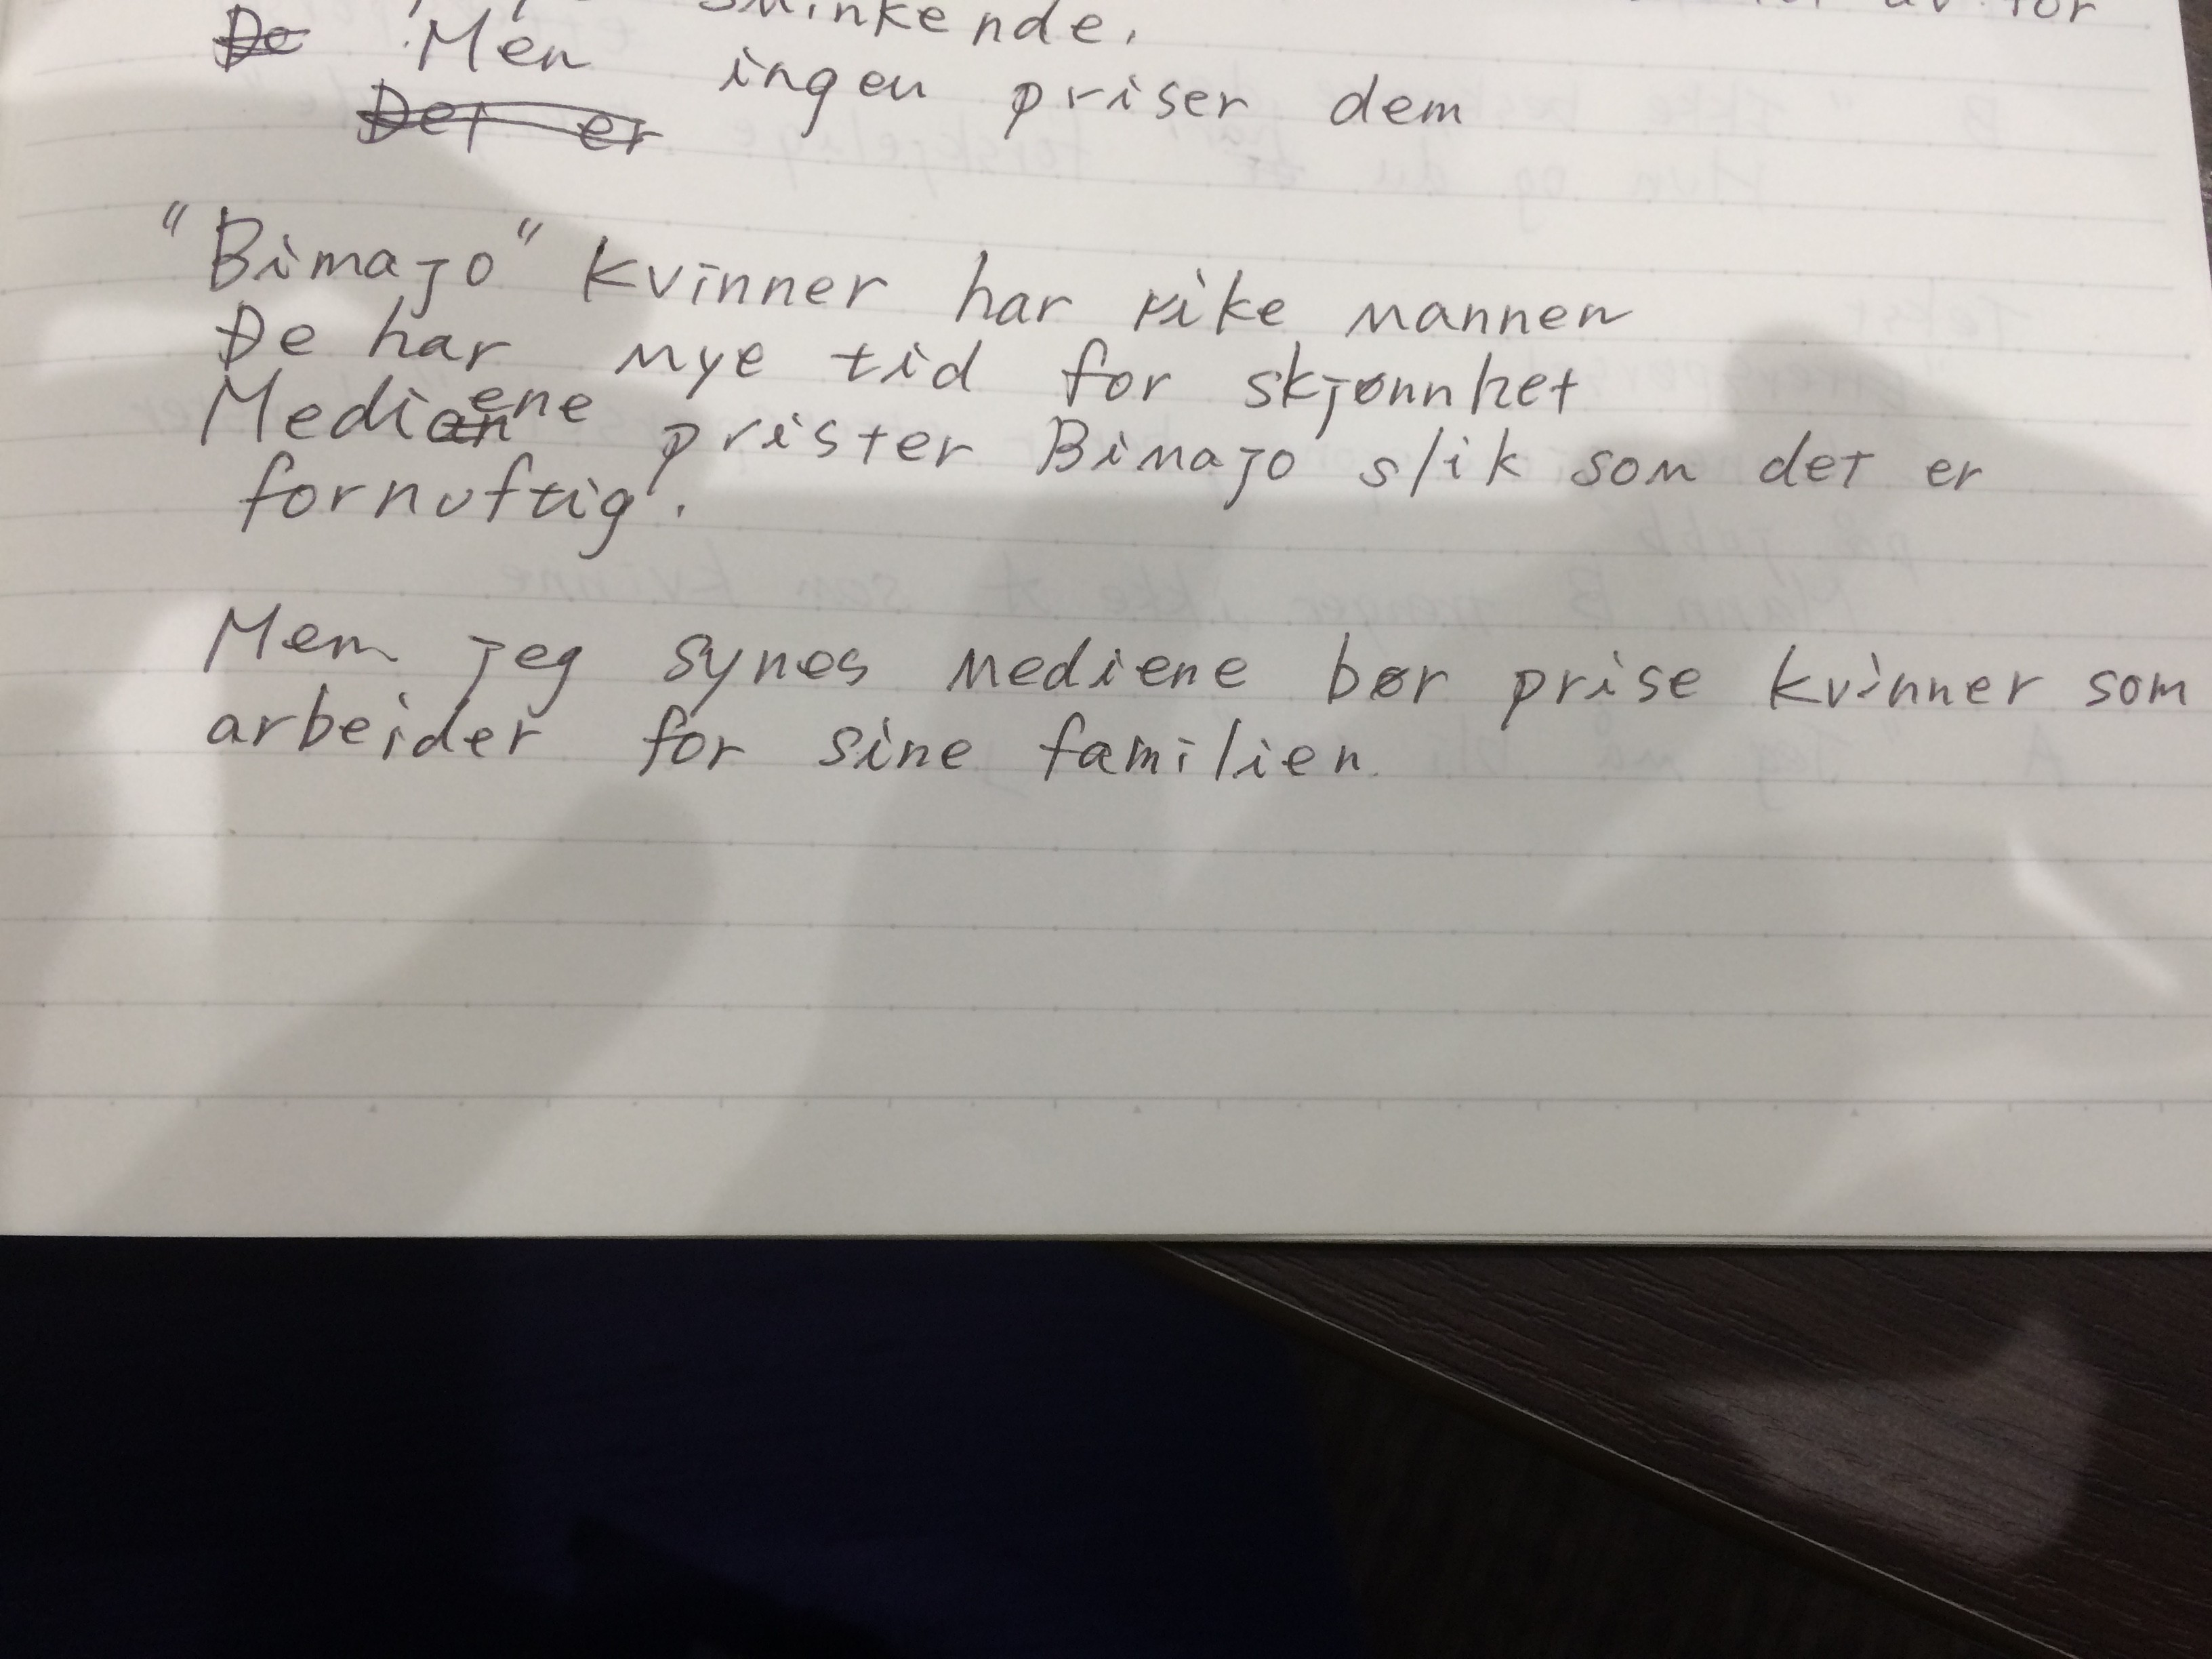 av for
sminkende.
De Men ingen priser dem
Det er
"Bimajo" kvinner har rike mannen
De har mye tid for skjønnhet
Mediene prister Bimajo slik som det er
fornuftig.
Men jeg synes mediene bør prise kvinner som
arbeider for sine familien.